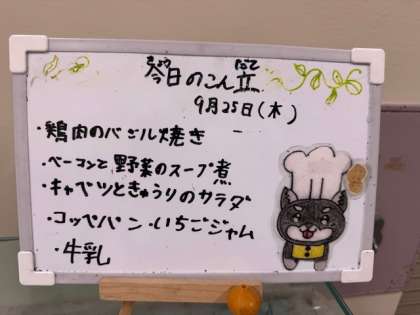 今日のこん立
9月25日(木)
・鶏肉のバジル焼き
・ベーコンと野菜のスープ煮
・キャベツときゅうりのサラダ
・コッペパン・いちごジャム
・牛乳